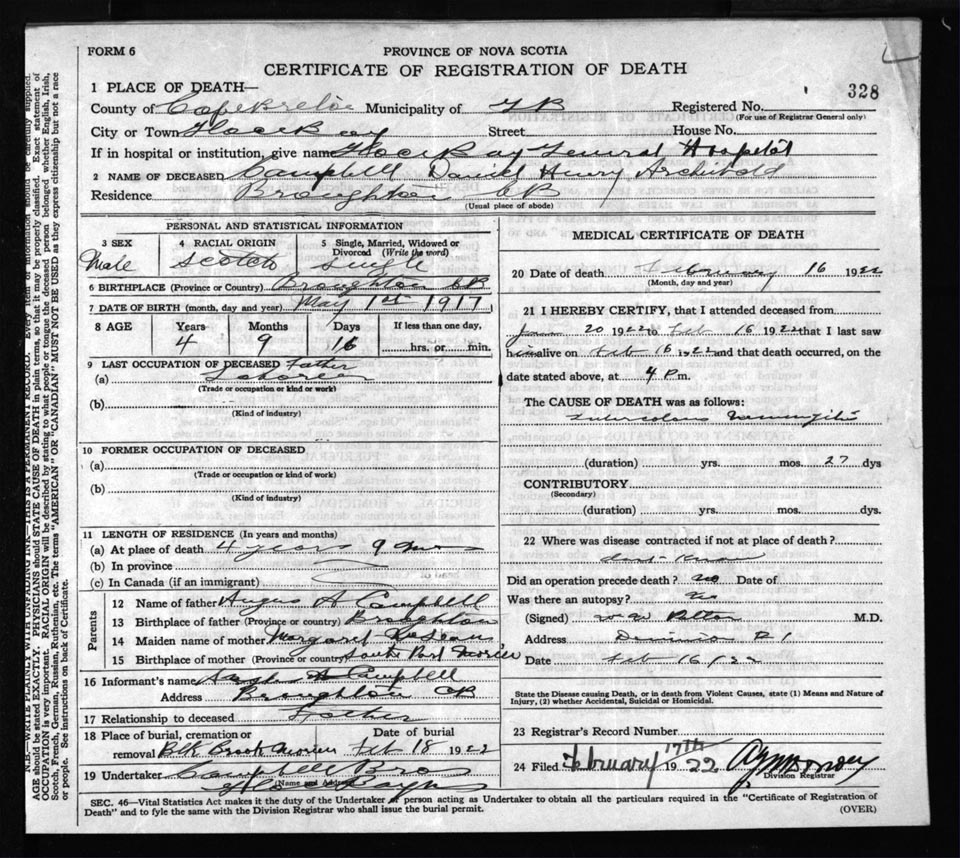 FORM 6
PROVINCE OF NOVA SCOTIA
CERTIFICATE OF REGISTRATION OF DEATH
328
1 PLACE OF DEATH—
County of Cape Breton Municipality of GB Registered No.
(For use of Registrar General only)
City or Town Glace Bay Street House No.
If in hospital or institution, give name Glace Bay General Hospital
2 NAME OF DECEASED Campbell Daniel Henry Archibald
Residence Broughton CB
(Usual place of abode)
PERSONAL AND STATISTICAL INFORMATION
3 SEX 4 RACIAL ORIGIN 5 Single, Married, Widowed or
Divorced (Write the word)
Male Scotch Single
6 BIRTHPLACE (Province or Country) Broughton CB
7 DATE OF BIRTH (month, day and year) May 1st 1917
8 AGE Years Months Days If less than one day,
4 9 16 hrs. or min.
9 LAST OCCUPATION OF DECEASED Father
(a)
(Trade or occupation or kind of work)
(b)
(Kind of industry)
10 FORMER OCCUPATION OF DECEASED
(a)
(Trade or occupation or kind of work)
(b)
(Kind of industry)
11 LENGTH OF RESIDENCE (In years and months)
(a) At place of death 4 years 9 mos
(b) In province
(c) In Canada (if an immigrant)
Parents
12 Name of father Angus A Campbell
13 Birthplace of father (Province or country) Broughton
14 Maiden name of mother Margaret
15 Birthplace of mother (Province or country) South Port Morien
16 Informant's name A Campbell
Address Broughton CB
17 Relationship to deceased Father
18 Place of burial, cremation or Date of burial
removal Blk Brook Morien Feb 18 1922
19 Undertaker Campbell Bros
Name and Address
Glace Bay NS
MEDICAL CERTIFICATE OF DEATH
20 Date of death February 16 1922
(Month, day and year)
21 I HEREBY CERTIFY, that I attended deceased from
Jan 20 1922 to Feb 16 1922 that I last saw
him alive on Feb 16 1922 and that death occurred, on the
date stated above, at 4 P m.
The CAUSE OF DEATH was as follows:
Tubercolous Menengitis
(duration) yrs. mos. 27 dys
CONTRIBUTORY
(Secondary)
(duration) yrs. mos. dys.
22 Where was disease contracted if not at place of death?
dont know
Did an operation precede death? no Date of
Was there an autopsy? no
(Signed) M.D.
Address Dominion
Date Feb 16/22
State the Disease causing Death, or in death from Violent Causes, state (1) Means and Nature of
Injury, (2) whether Accidental, Suicidal or Homicidal.
23 Registrar's Record Number
24 Filed February 17th 1922
Division Registrar
SEC. 46—Vital Statistics Act makes it the duty of the Undertaker or person acting as Undertaker to obtain all the particulars required in the "Certificate of Registration of
Death" and to fyle the same with the Division Registrar who shall issue the burial permit.
(OVER)
N.B.—WRITE PLAINLY WITH UNFADING INK—THIS IS A PERMANENT RECORD. Every item of information should be carefully supplied.
AGE should be stated EXACTLY. PHYSICIANS should STATE CAUSE OF DEATH in plain terms, so that it may be properly classified. Exact statement of
OCCUPATION is very important. RACIAL ORIGIN will be described by stating to what people or tongue the deceased person belonged, whether English, Irish,
Scotch, French, German, Russian, Ruthenian, etc. The terms "AMERICAN" OR "CANADIAN" MUST NOT BE USED as they express citizenship but not a race
or people. See instructions on back of Certificate.